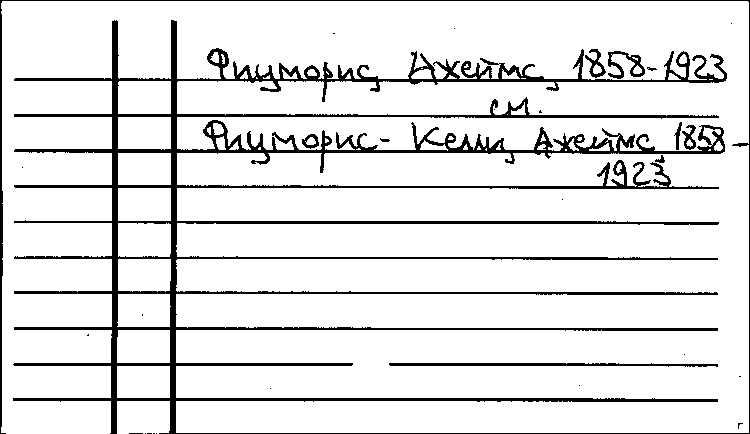 Фицморис, Джеймс, 1858-1923
см.
Фицморис-Келли, Джеймс, 1858-
1923